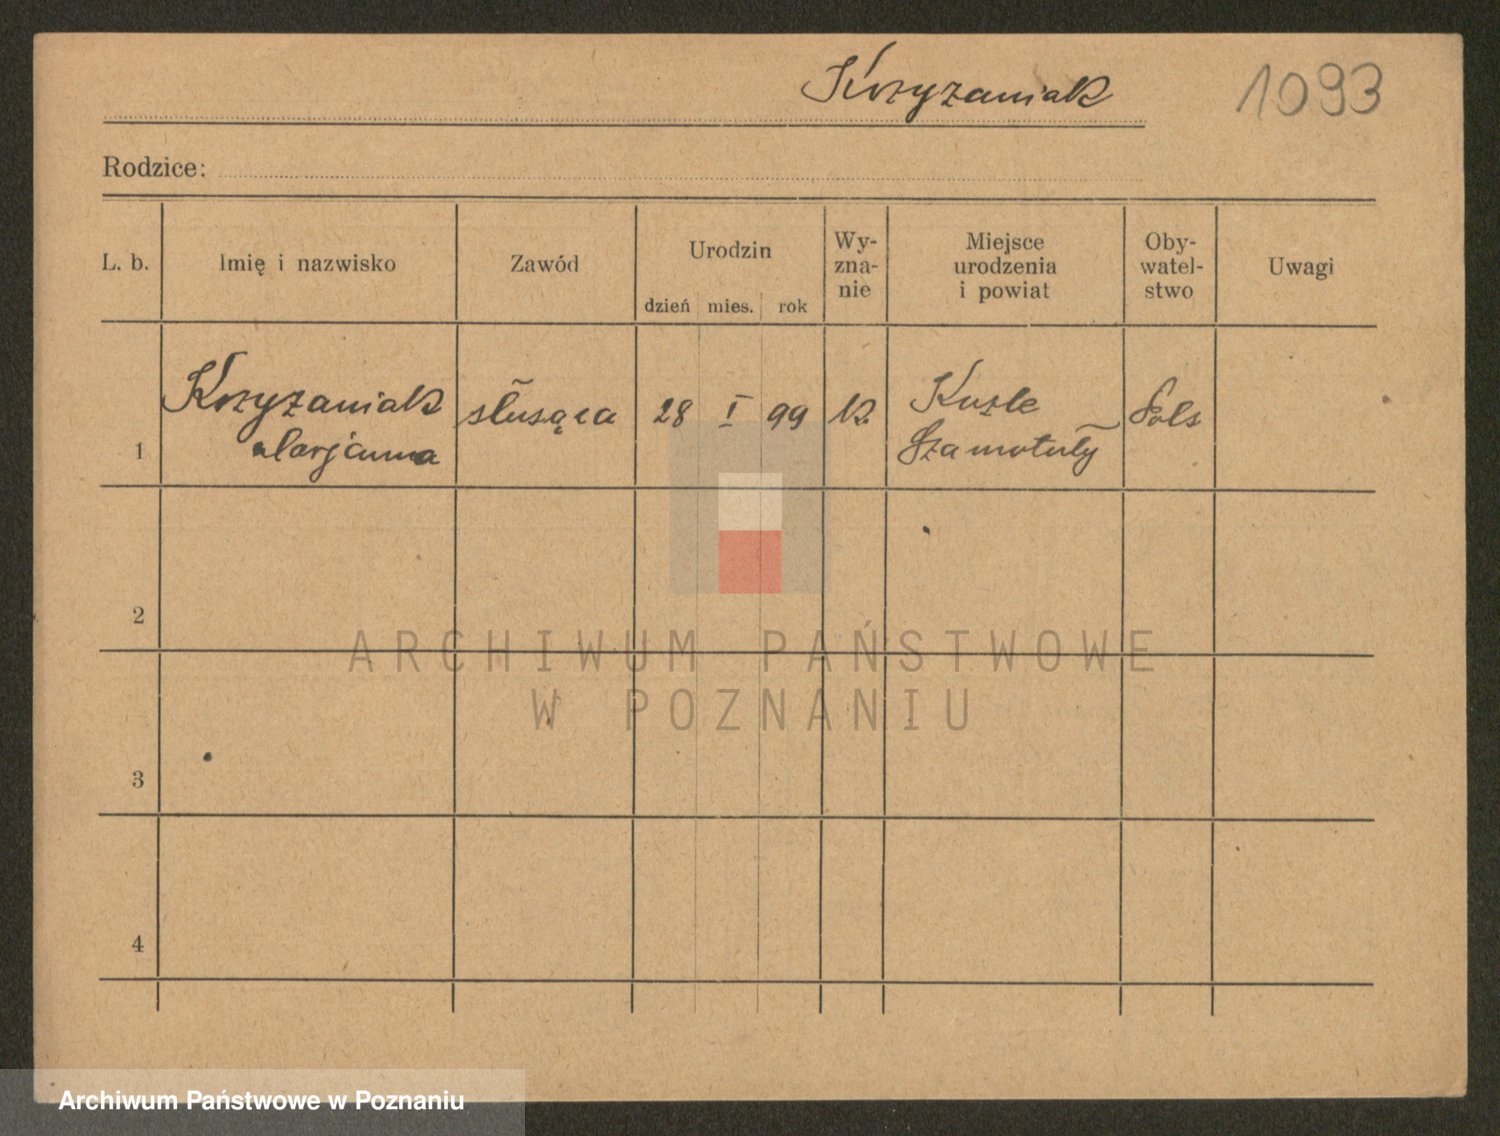 Krzyzaniak
1093
Rodzice:
L. b.
Imię i nazwisko
Zawód
Urodzin
dzień mies. rok
Wy-
zna-
nie
Miejsce
urodzenia
i powiat
Oby-
watel-
stwo
Uwagi
1
Krzyzaniak
Marjanna
służąca
28 I 99
k.
Szamotuły
Pols
2
3
4
ARCHIWUM PAŃSTWOWE
W POZNANIU
Archiwum Państwowe w Poznaniu